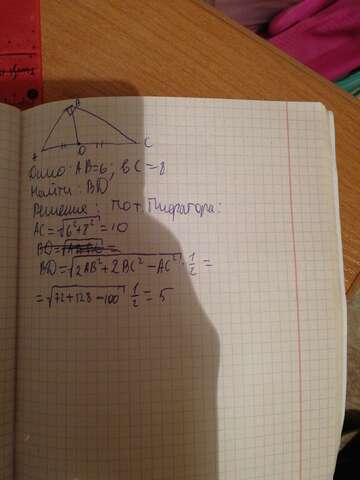 B
A
D
C
Дано: AB=6, BC=8
Найти: BD
Решение: по т Пифагора:
AC=√6²+8² = 10
BD=√2AB²+2BC²-AC² · 1/2 =
=√72+128-100 1/2 = 5